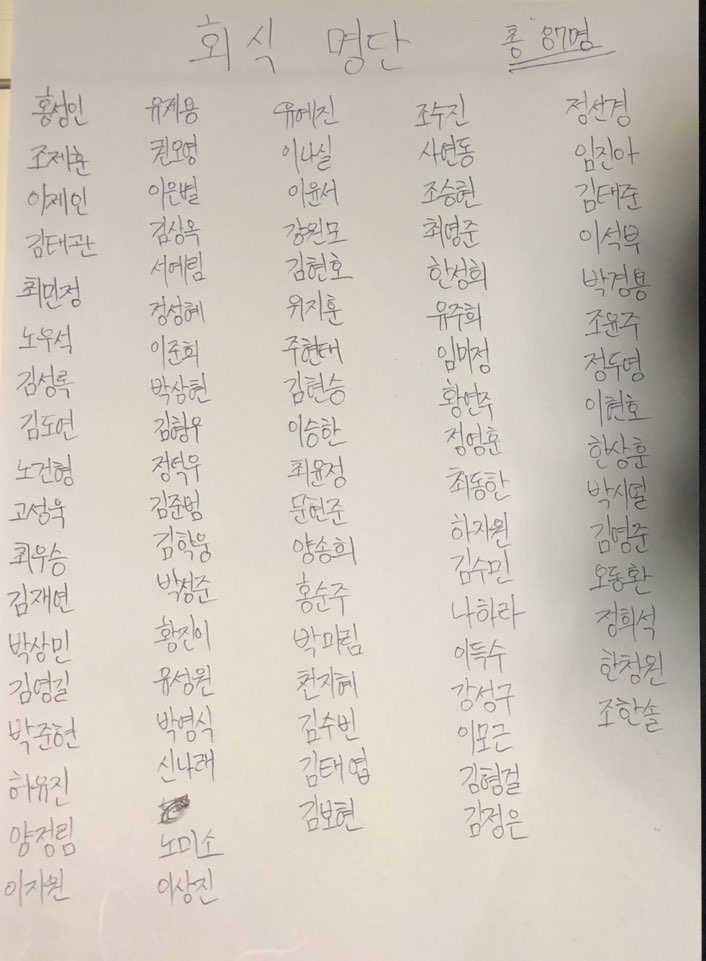 회식 명단
총 87명
홍성인
조제훈
이제인
김태관
최민정
노우석
김성록
김도연
노건형
고성욱
최우승
김재연
박상민
김영길
박준현
하유진
양정림
이지원
유제용
권오영
이은별
김상옥
서예림
정성혜
이준희
박상현
김형우
정덕우
김준범
김학웅
박성준
황진이
유성원
박영식
신나래
노미소
이상진
유예진
이나실
이윤서
강원모
김현호
위지훈
주현태
김현승
이승한
최윤정
문현준
양송희
홍순주
박미림
천지혜
김수빈
김태엽
김보현
조수진
사연동
조승현
최영준
한성희
유주희
임미정
황연주
정영훈
최동한
하지원
김수민
나하라
이득수
강성구
이모근
김형걸
김정은
정선경
임진아
김태준
이석부
박경용
조윤주
정두영
이현호
한상훈
김영준
오동환
정희석
한창원
조한솔